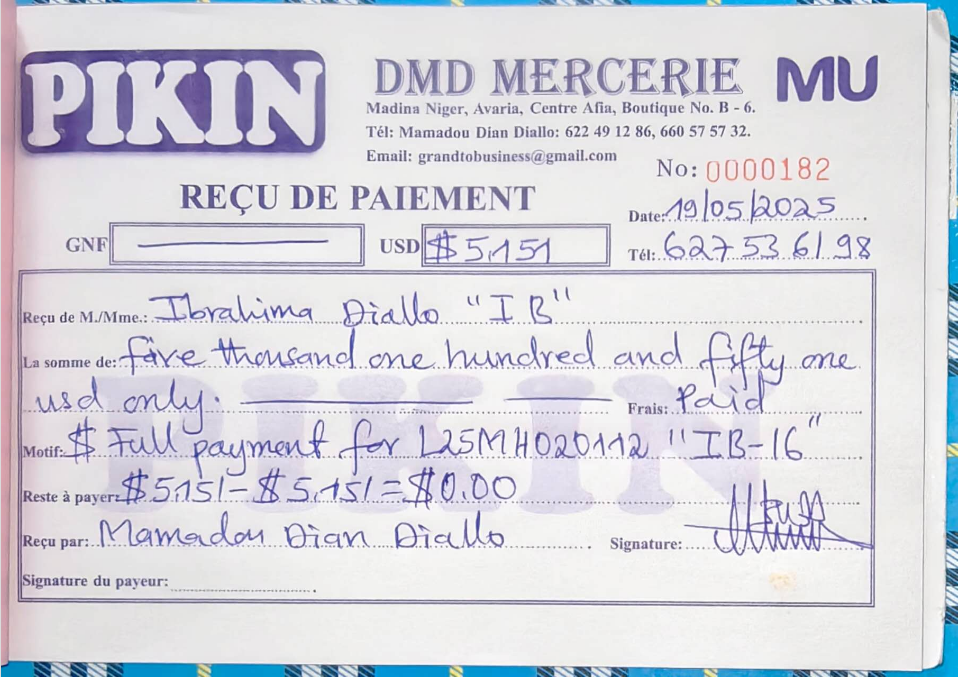 PIKIN
DMD MERCERIE
MU
Madina Niger, Avaria, Centre Afia, Boutique No. B - 6.
Tél: Mamadou Dian Diallo: 622 49 12 86, 660 57 57 32.
Email: grandtobusiness@gmail.com
No: 0000182
REÇU DE PAIEMENT
Date: 19/05/2025
GNF USD $5,151
Tél: 627 53 61 98
Reçu de M./Mme.: Ibrahima Diallo "IB"
La somme de: five thousand one hundred and fifty one
usd only. Frais: Paid
Motif: $ Full payment for L25MH020112 "IB-16"
Reste à payer: $5,151 - $5,151 = $0.00
Reçu par: Mamadou Dian Diallo Signature:
Signature du payeur:
PIKIN